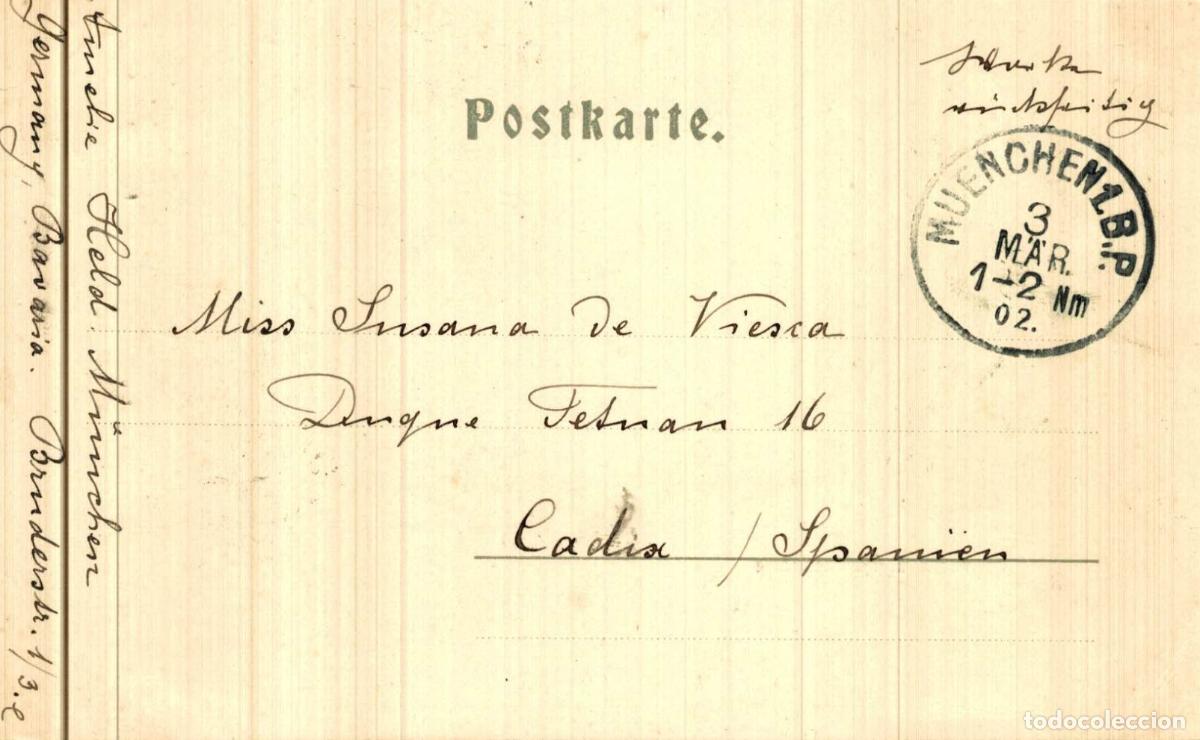 Amelie Held. München
Germany, Bavaria. Bruderstr. 1/3.
Marke
rückseitig
Postkarte.
MUENCHEN 1. B.P.
3
MÄR.
1-2 Nm
02.
Miss Susana de Viesca
Duque Tetuan 16
Cadix / Spanien
todocoleccion